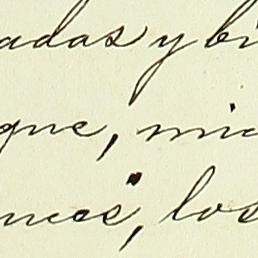 adas y bi
que, mic
nces, los